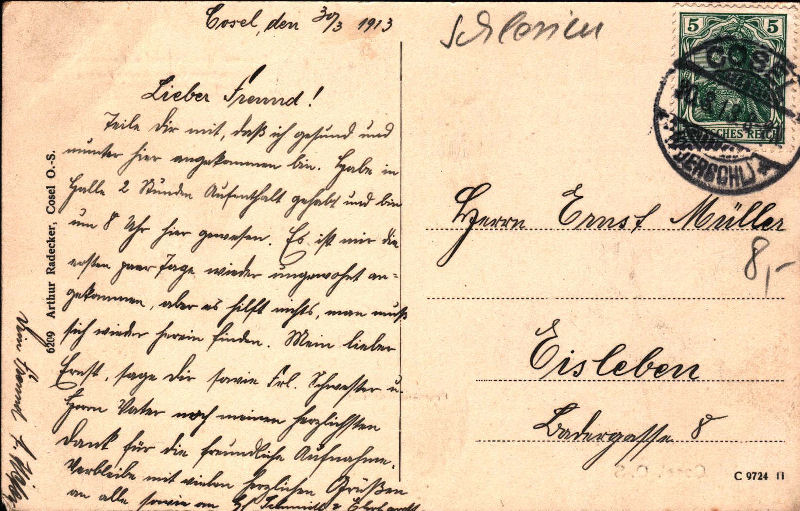 Cosel, den 30/3 1913
Schlesien
Lieber Freund!
Teile Dir mit, daß ich gesund und
munter hier angekommen bin. Habe in
Halle 2 Stunden Aufenthalt gehabt und bin
um 8 Uhr hier gewesen. Es ist mir die
ersten paar Tage wieder ungewohnt an-
gekommen, aber es hilft nichts, man muß
sich wieder herein finden. Mein lieber
Ernst, sage Dir sowie Frl. Schwester u.
Herrn Vater noch meinen herzlichsten
Dank für die freundliche Aufnahme.
Verbleibe mit vielen herzlichen Grüßen
an alle sowie an Schmidt Eberhardt
Dein Freund
6209 Arthur Radecker, Cosel O.-S.
5 5
DEUTSCHES REICH
COSEL
(OBERSCHL)
Herrn Ernst Müller
8,-
Eisleben
Badergasse 8
C 9724 11